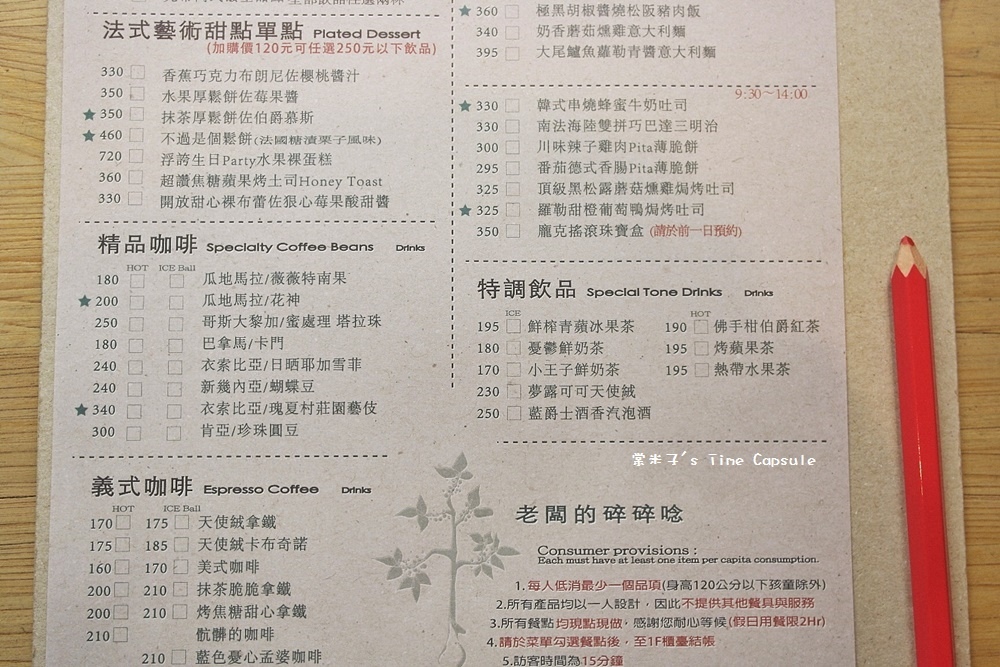 法式藝術甜點單點 Plated Dessert
(加購價120元可任選250元以下飲品)
330 香蕉巧克力布朗尼佐櫻桃醬汁
350 水果厚鬆餅佐莓果醬
★ 350 抹茶厚鬆餅佐伯爵慕斯
★ 460 不過是個鬆餅(法國糖漬栗子風味)
720 浮誇生日Party水果裸蛋糕
360 超讚焦糖蘋果烤土司Honey Toast
330 開放甜心裸布蕾佐狠心莓果酸甜醬
精品咖啡 Specialty Coffee Beans Drinks
HOT ICE Ball
180 瓜地馬拉/薇薇特南果
★ 200 瓜地馬拉/花神
250 哥斯大黎加/蜜處理 塔拉珠
180 巴拿馬/卡門
240 衣索比亞/日晒耶加雪菲
240 新幾內亞/蝴蝶豆
★ 340 衣索比亞/瑰夏村莊園藝伎
300 肯亞/珍珠圓豆
義式咖啡 Espresso Coffee Drinks
HOT ICE Ball
170 175 天使絨拿鐵
175 185 天使絨卡布奇諾
160 170 美式咖啡
200 210 抹茶脆脆拿鐵
200 210 烤焦糖甜心拿鐵
210 骯髒的咖啡
210 藍色憂心孟婆咖啡
★ 360 極黑胡椒醬燒松阪豬肉飯
340 奶香蘑菇燻雞意大利麵
395 大尾鱸魚蘿勒青醬意大利麵
9:30~14:00
★ 330 韓式串燒蜂蜜牛奶吐司
330 南法海陸雙拼巧巴達三明治
300 川味辣子雞肉Pita薄脆餅
295 番茄德式香腸Pita薄脆餅
325 頂級黑松露蘑菇燻雞焗烤吐司
★ 325 羅勒甜橙葡萄鴨焗烤吐司
350 龐克搖滾珠寶盒 (請於前一日預約)
特調飲品 Special Tone Drinks Drinks
ICE HOT
195 鮮榨青蘋冰果茶 190 佛手柑伯爵紅茶
180 憂鬱鮮奶茶 195 烤蘋果茶
170 小王子鮮奶茶 195 熱帶水果茶
230 夢露可可天使絨
250 藍爵士酒香汽泡酒
棠米子's Time Capsule
老闆的碎碎唸
Consumer provisions :
Each must have at least one item per capita consumption.
1.每人低消最少一個品項(身高120公分以下孩童除外)
2.所有產品均以一人設計，因此不提供其他餐具與服務
3.所有餐點均現點現做，感謝您耐心等候(假日用餐限2Hr)
4.請於菜單勾選餐點後，至1F櫃臺結帳
5.訪客時間為15分鐘